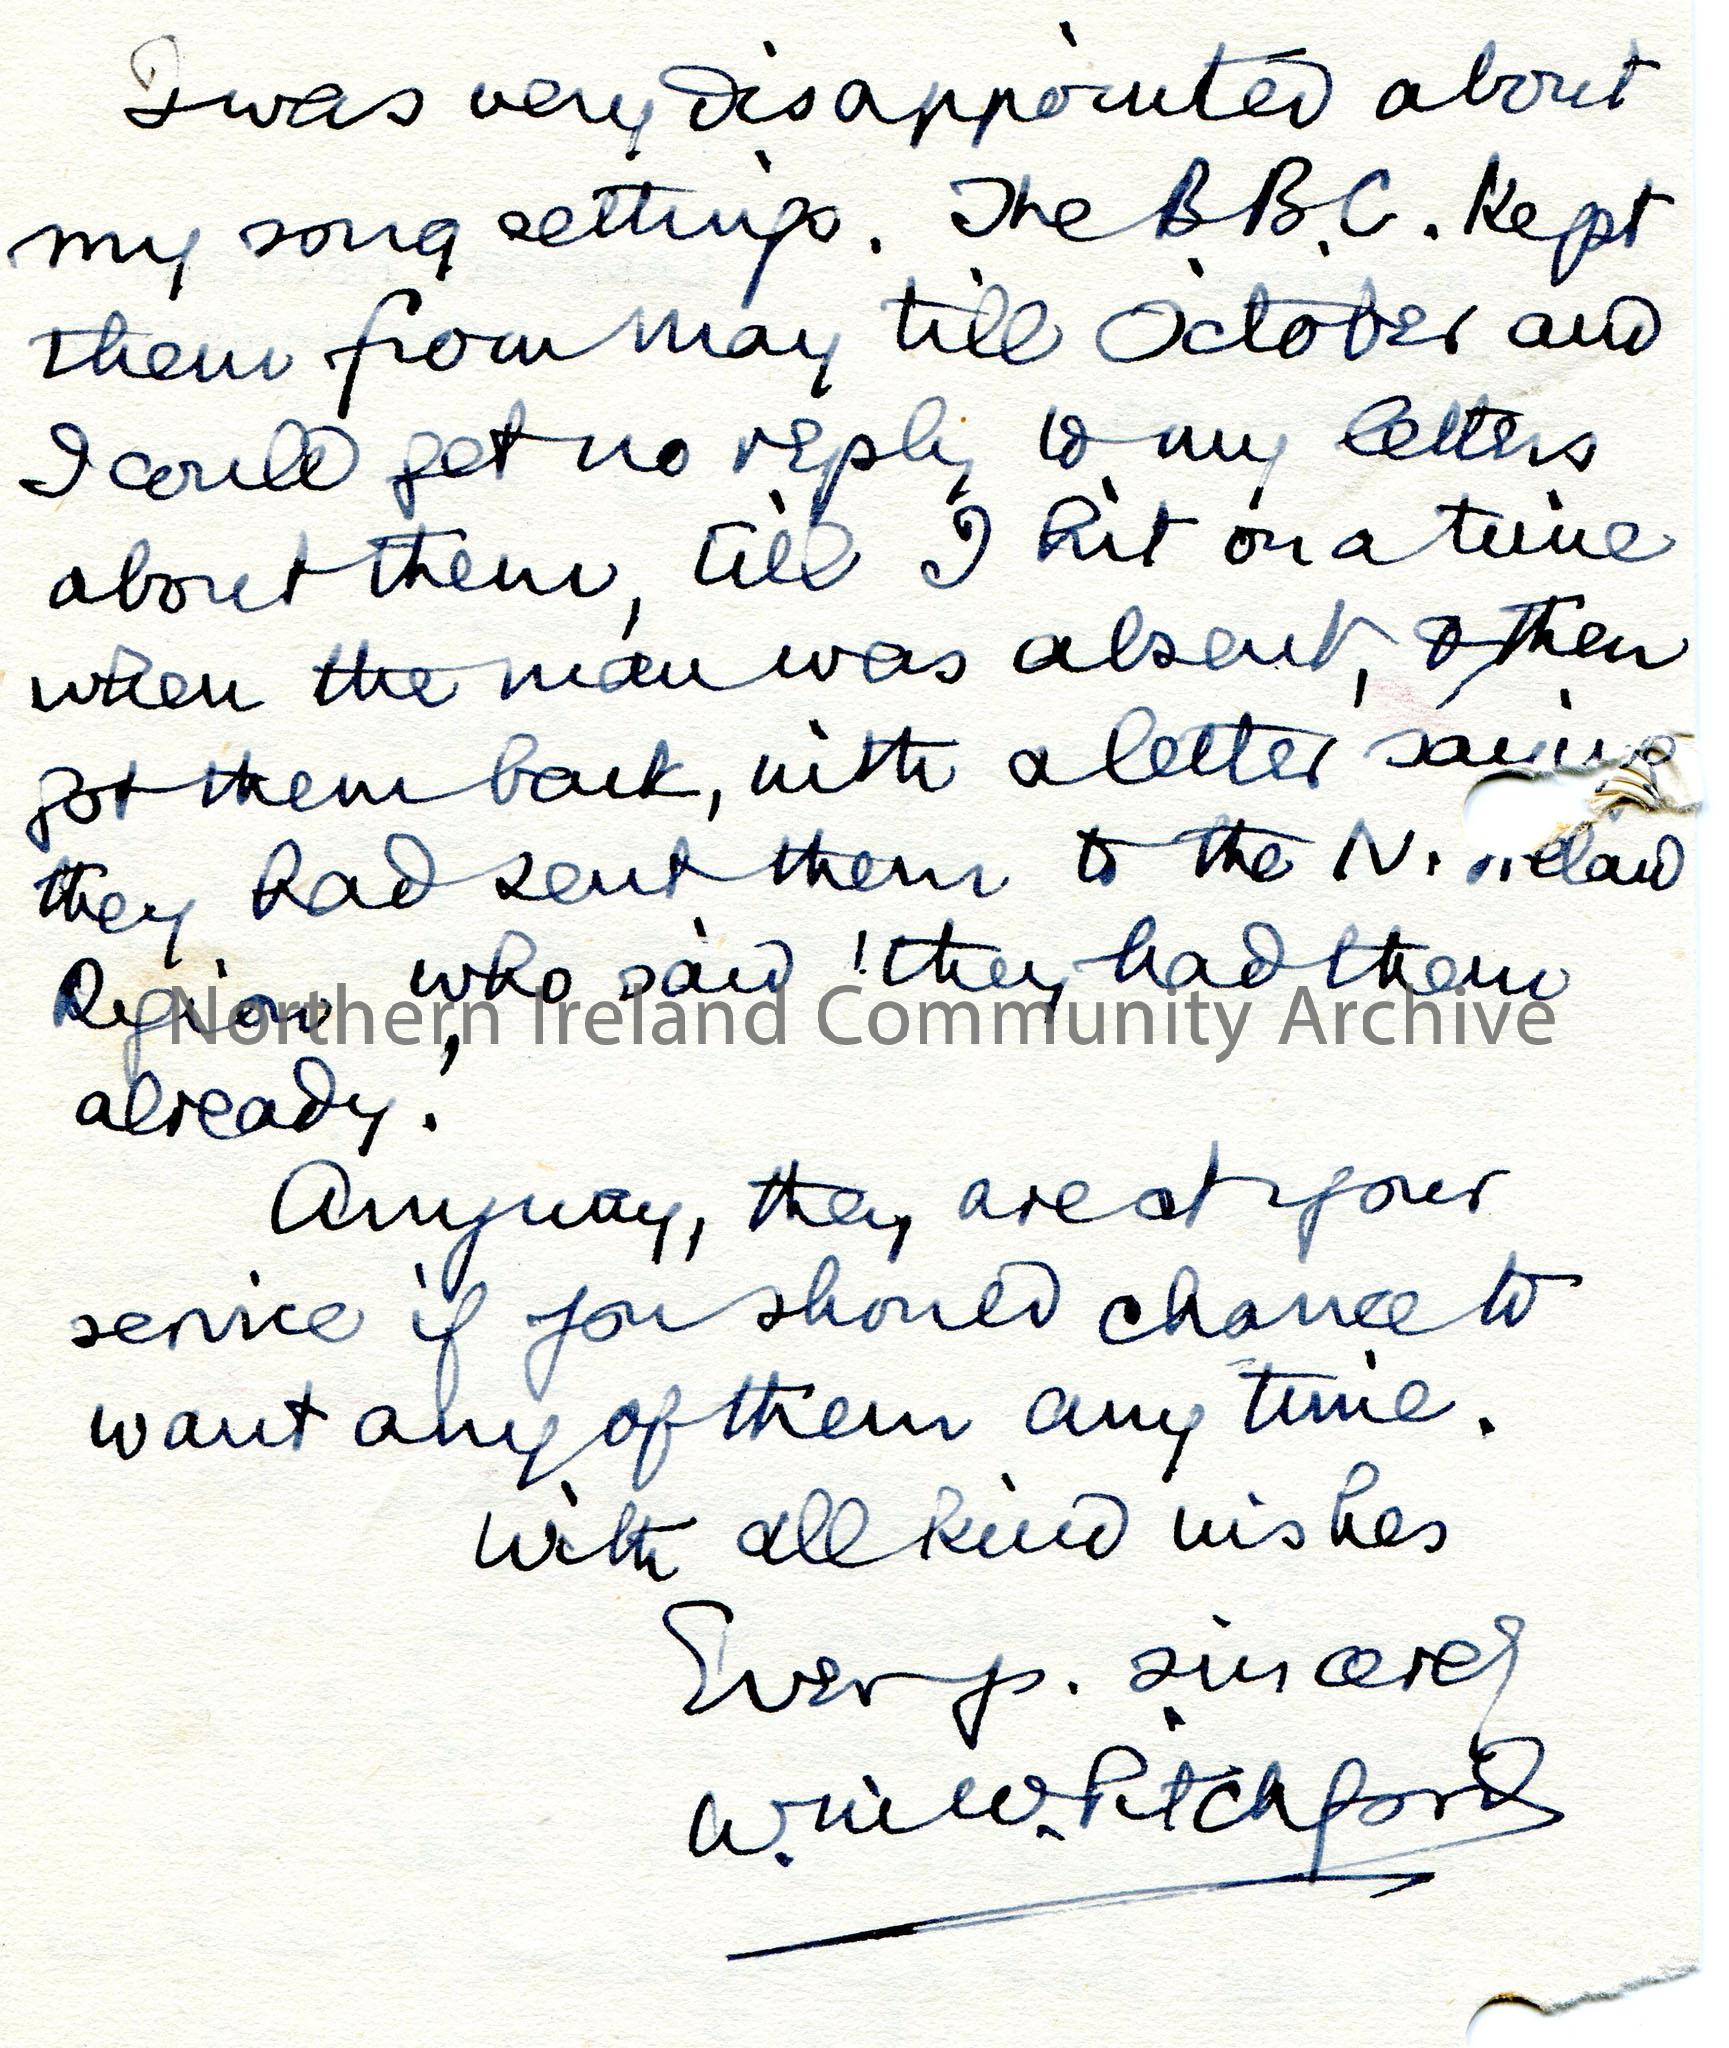 I was very disappointed about
my song settings. The B B.C. kept
them from May till October and
I could get no reply to my letters
about them, till I hit on a time
when the man was absent, & then
got them back, with a letter saying
they had sent them to the N. Ireland
Region, who said 'they had them
already.'
Northern Ireland Community Archive
Anyway, they are at your
service if you should chance to
want any of them any time.
With all kind wishes
Ever yr. sincerely
W. W. Pitchford